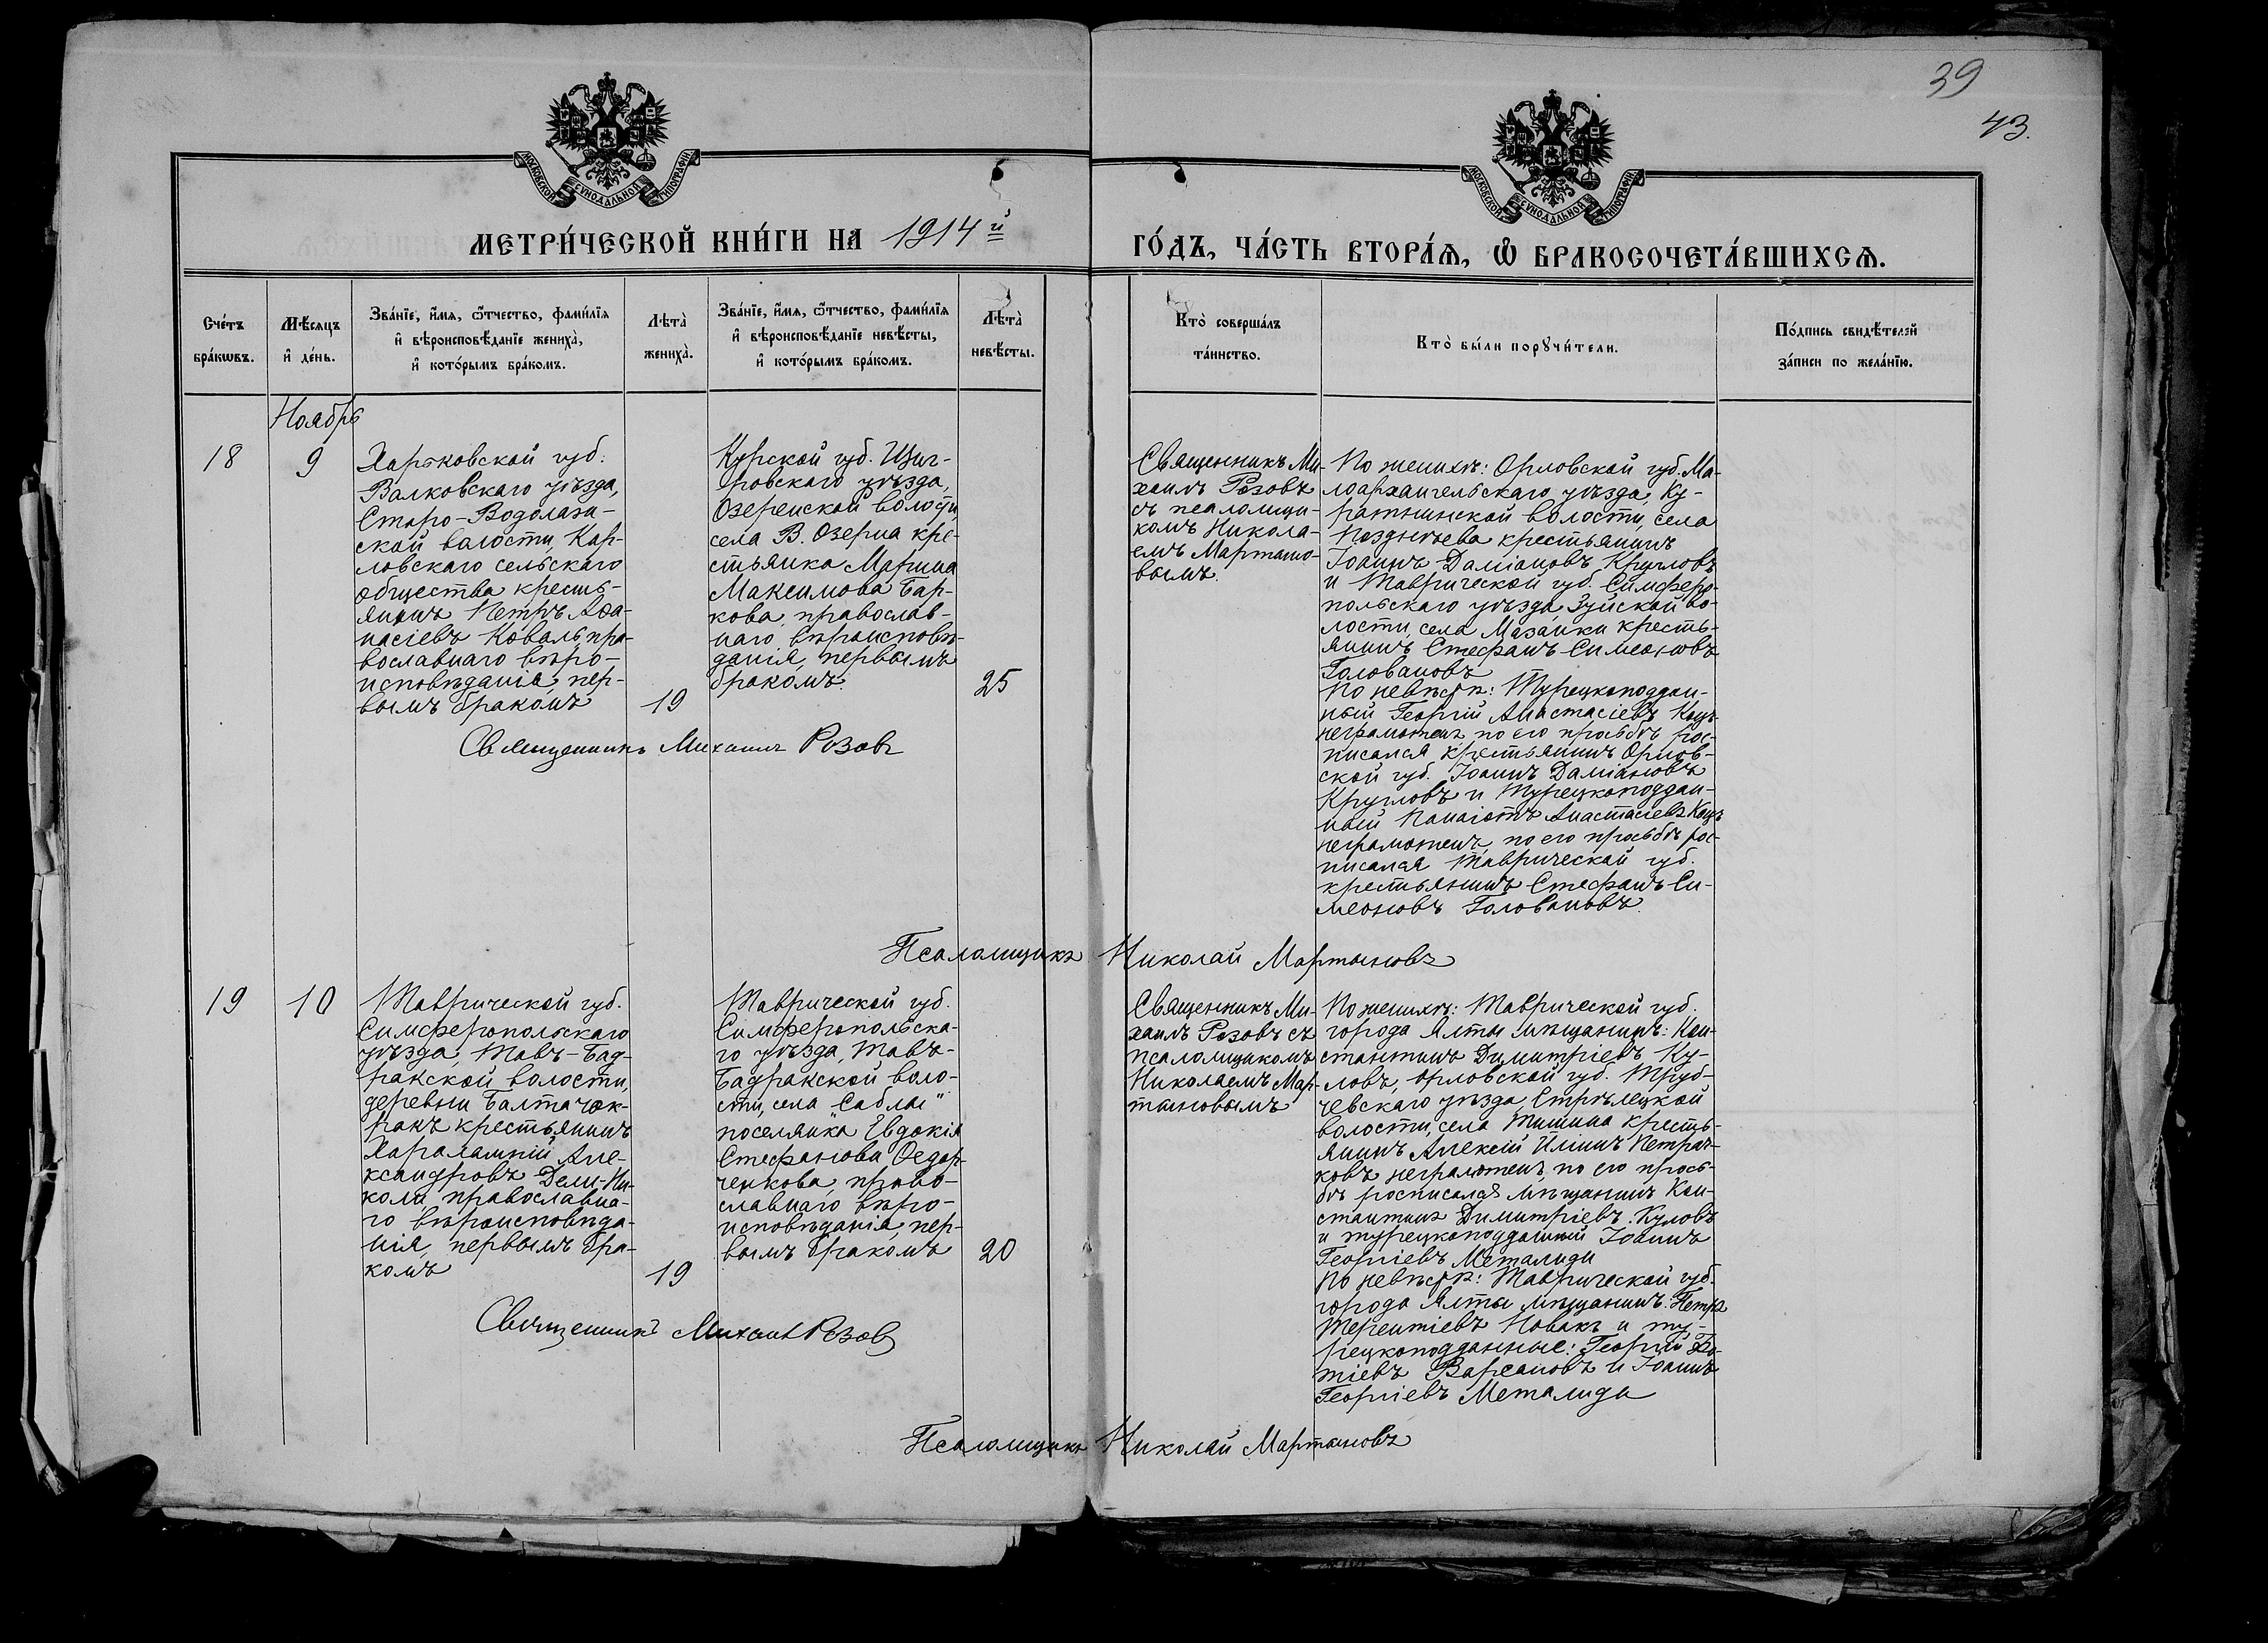 39
43.
МОСКОВСКОЙ СѴНОДАЛЬНОЙ ТИПОГРАФІИ
МОСКОВСКОЙ СѴНОДАЛЬНОЙ ТИПОГРАФІИ
МЕТРИ́ЧЕСКОЙ КНИ́ГИ НА 1914 й
ГО́ДЪ, ЧА́СТЬ ВТОРА́Ѧ, Ѽ БРАКОСОЧЕТА́ВШИХСѦ.
Сче́тъ
бра́кѡвъ.
Мѣ́сѧцъ
и҆ де́нь.
Зва́нїе, и҆́мѧ, ѻ҆́тчество, фами́лїѧ
и҆ вѣроисповѣ́данїе жениха̀,
и҆ кото́рымъ бра́комъ.
Лѣта̀
жениха̀.
Зва́нїе, и҆́мѧ, ѻ҆́тчество, фами́лїѧ
и҆ вѣроисповѣ́данїе невѣ́сты,
и҆ кото́рымъ бра́комъ.
Лѣта̀
невѣ́сты.
Кто̀ соверша́лъ
та́инство.
Кто̀ бы́ли порꙋчи́тели.
По́дпись свидѣ́телей
за́писи по жела́нїю.
Ноябрь
18
9
Харьковской губ.
Валковскаго уѣзда,
Старо-Водолаж-
ской волости, Кар-
ловскаго сельскаго
общества кресть-
янинъ Петръ Аѳа-
насіевъ Коваль, пра-
вославнаго вѣро-
исповѣданія, пер-
вымъ бракомъ
19
Курской губ. Щиг-
ровскаго уѣзда,
Озеренской волости
села В. Озерна кре-
стьянка Марина
Максимова Бар-
кова, православ-
наго вѣроисповѣ-
данія, первымъ
бракомъ.
25
Священникъ Ми-
хаилъ Розовъ
съ псаломщи-
комъ Никола-
емъ Мартыно-
вымъ.
По женихѣ: Орловской губ. Ма-
лоархангельскаго уѣзда, Ку-
ракинской волости, села
Позднѣева крестьянинъ
Іоаннъ Даміановъ Кругловъ
и Таврической губ. Симферо-
польскаго уѣзда, Зуйской во-
лости, села Мазанки кресть-
янинъ Стефанъ Симеоновъ
Головановъ
По невѣстѣ: Турецкоподдан-
ный Георгій Анастасіевъ
неграмотенъ по его просьбѣ рос-
писался крестьянинъ Орлов-
ской губ. Іоаннъ Даміановъ
Кругловъ и Турецкоподдан-
ный Панаіотъ Анастасіевъ
неграмотенъ, по его просьбѣ рос-
писался Таврической губ.
крестьянинъ Стефанъ Си-
меоновъ Головановъ.
Священникъ Михаилъ Розовъ
Псаломщикъ Николай Мартыновъ
19
10
Таврической губ.
Симферопольскаго
уѣзда, Тавъ-Бад-
ракской волости,
деревни Балта-Чок-
ракъ крестьянинъ
Харалампій Але-
ксандровъ Дели-Ни-
коли православна-
го вѣроисповѣда-
нія, первымъ бра-
комъ
19
Таврической губ.
Симферопольска-
го уѣзда, Тавъ-
Бадракской воло-
сти, села "Саблы"
поселянка Евдокія
Стефанова Ѳедор-
ченкова, право-
славнаго вѣро-
исповѣданія, пер-
вымъ бракомъ
20
Священникъ Ми-
хаилъ Розовъ съ
псаломщикомъ
Николаемъ Мар-
тыновымъ
По женихѣ: Таврической губ.
города Ялты мѣщанинъ: Кон-
стантинъ Димитріевъ Ку-
ловъ, Орловской губ. Труб-
чевскаго уѣзда, Стрѣлецкой
волости, села Тишина кресть-
янинъ Алексій Иліинъ Петрач-
ковъ неграмотенъ, по его прось-
бѣ росписался мѣщанинъ Кон-
стантинъ Димитріевъ Куловъ
и турецкоподданный Іоаннъ
Георгіевъ Металиди
По невѣстѣ: Таврической губ.
города Ялты мѣщанинъ: Петръ
Терентіевъ Новакъ и ту-
рецкоподданные: Георгій Фо-
тіевъ Варсановъ и Іоаннъ
Георгіевъ Металиди
Священникъ Михаил Розовъ
Псаломщикъ Николай Мартыновъ